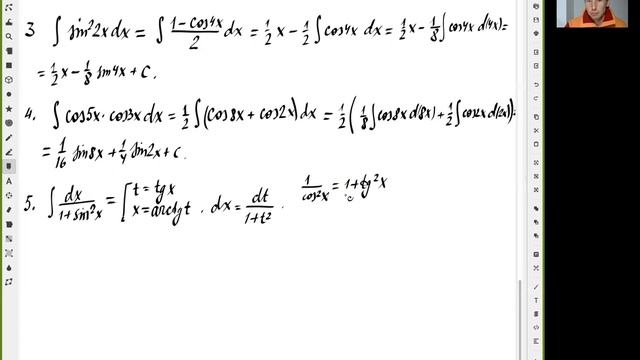 3. ∫ sin²2x dx = ∫ (1 - cos4x)/2 dx = 1/2 x - 1/2 ∫ cos4x dx = 1/2 x - 1/8 ∫ cos4x d(4x) =
= 1/2 x - 1/8 sin4x + C.
4. ∫ cos5x · cos3x dx = 1/2 ∫ (cos8x + cos2x) dx = 1/2 (1/8 ∫ cos8x d(8x) + 1/2 ∫ cos2x d(2x)) =
= 1/16 sin8x + 1/4 sin2x + C.
5. ∫ dx/(1 + sin²x) = [ t = tgx
x = arctgt , dx = dt/(1 + t²) . 1/cos²x = 1 + tg²x